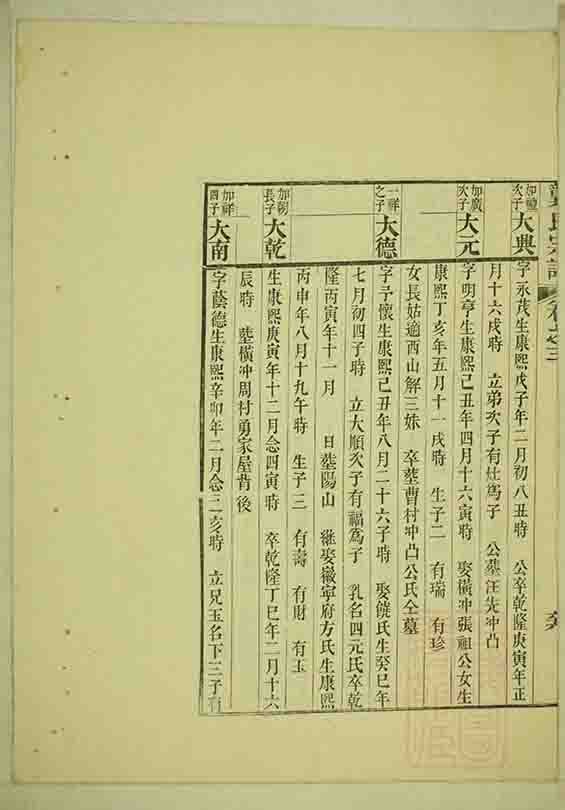 氏宗譜 卷之三
加禮次子 大典 字永茂生康熙戊子年二月初八丑時 公卒乾隆庚寅年正
月十六戌時 立弟次子有灶爲子 公塟汪先冲凸
加廣次子 大元 字明亨生康熙己丑年四月十六寅時 娶橫冲張祖公女生
康熙丁亥年五月十一戌時 生子二 有瑞 有珍
女長姑適西山解三妹 卒塟曹村冲凸公氏仝墓
一祥之子 大德 字予懷生康熙己丑年八月二十六子時 娶饒氏生癸巳年
七月初四子時 立大順次子有福爲子 乳名四元氏卒乾
隆丙寅年十一月 日塟陽山 繼娶徽寧府方氏生康熙
丙申年八月十九午時 生子三 有壽 有財 有玉
加朝長子 大乾 生康熙庚寅年十二月念四寅時 卒乾隆丁巳年二月十六
辰時 塟橫冲周村勇家屋背後
加祥四子 大南 字蔭德生康熙辛卯年二月念三亥時 立兄玉名下三子有